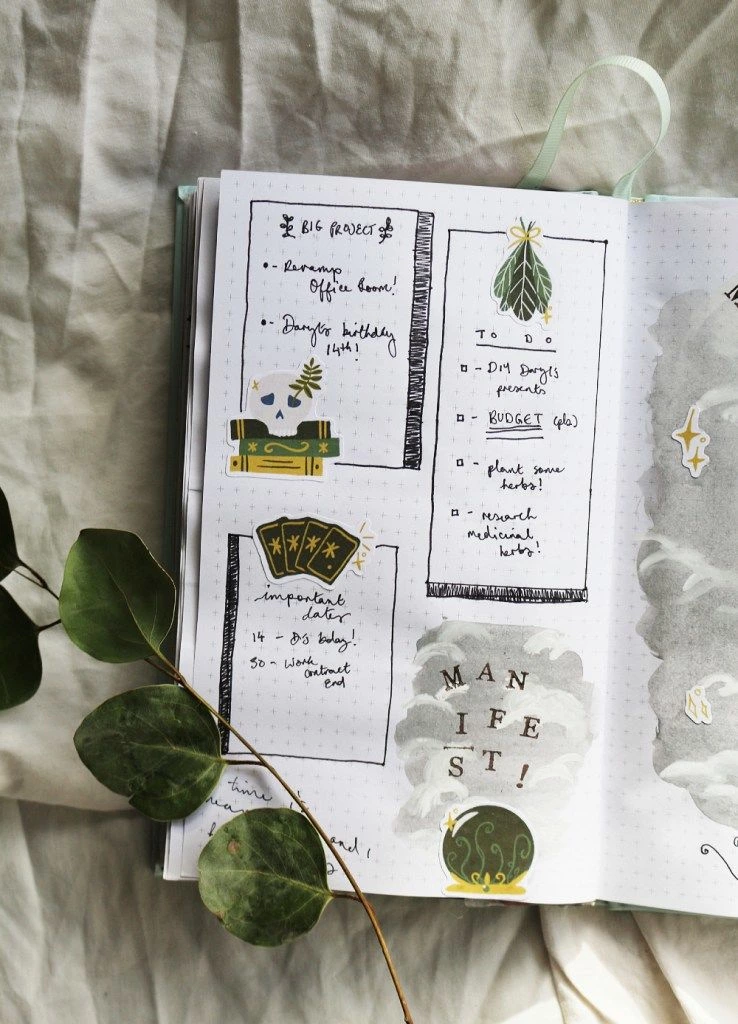 BIG PROJECT
•- Revamp
Office Room!
•- Daryl's birthday
14th!
TO DO
- DIY Daryl's
presents
- BUDGET (pls)
- plant some
herbs!
- research
medicinal
herbs!
important
dates
14 - D's bday!
30 - Work
contract
end
MAN
IFE
ST!
time